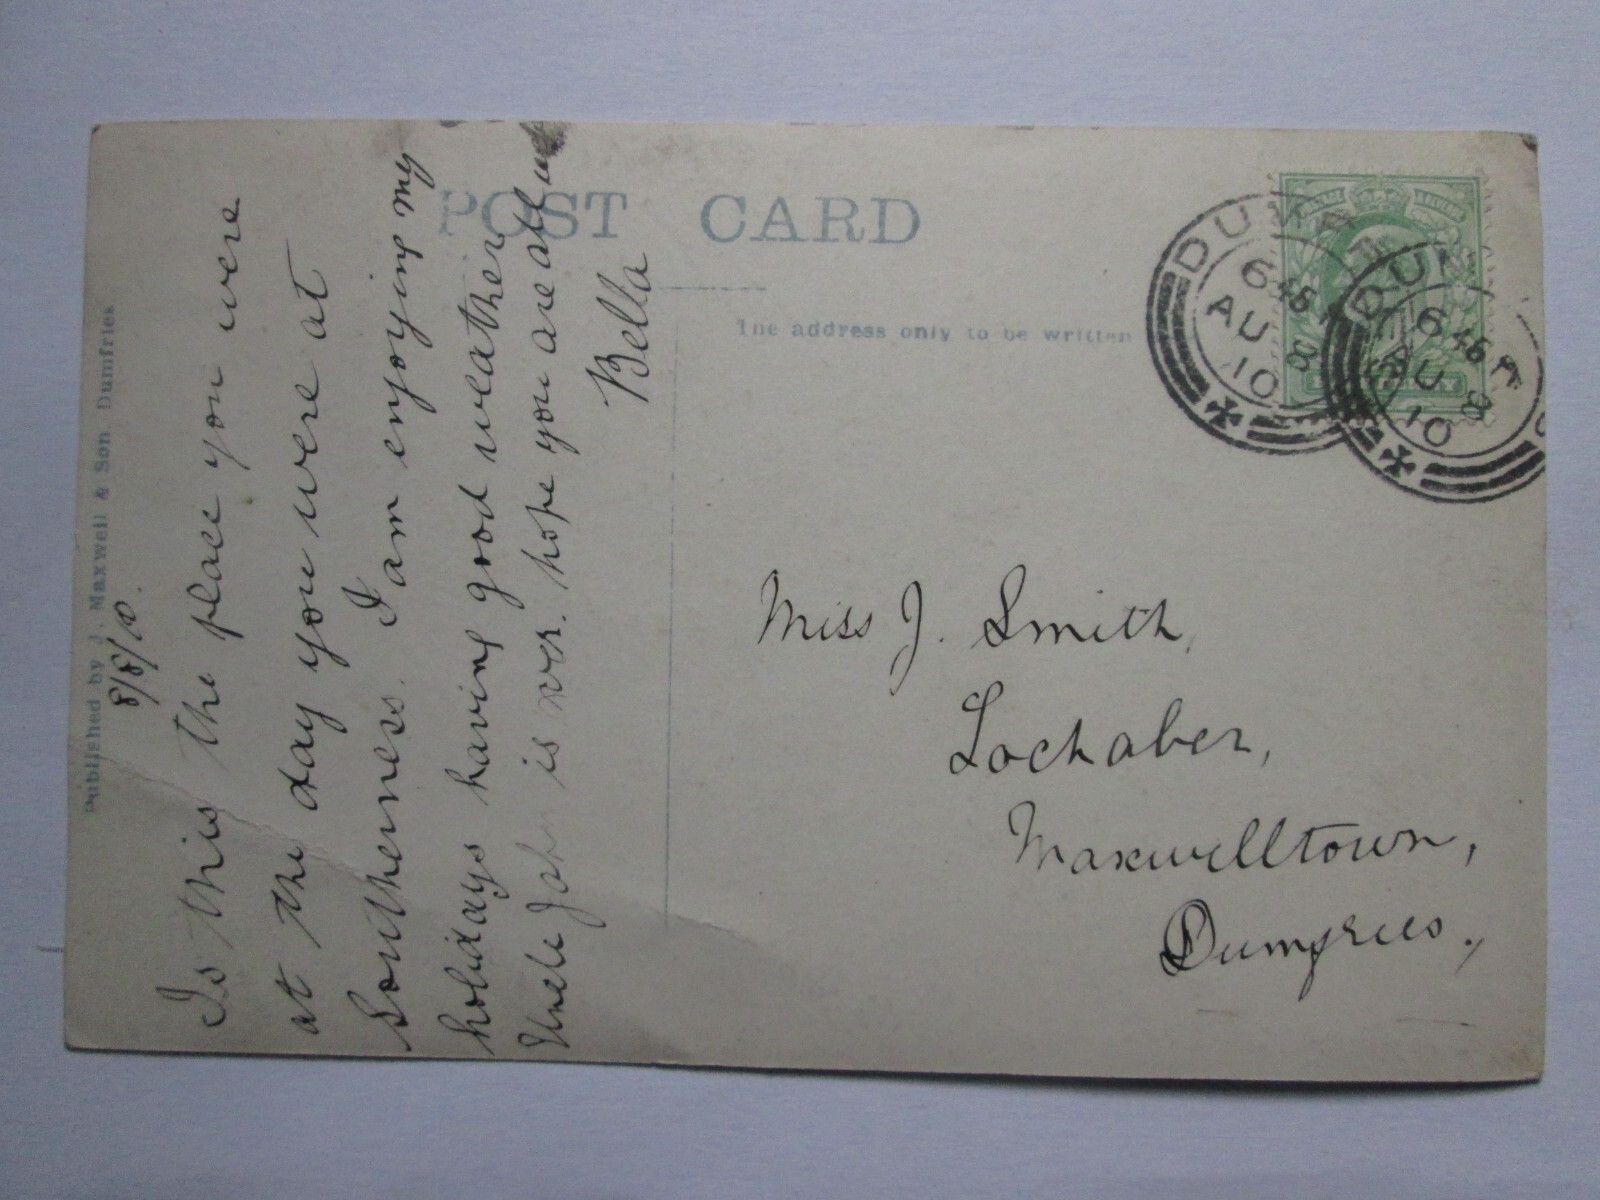 Published by J. Maxwell & Son. Dumfries
8/8/10.
Is this the place you were
at the day you were at
Southerness. I am enjoying my
holidays having good weather
Uncle John is over. hope you are all
Bella
POST CARD
The address only to be written
DUMFRIES
6 45 
AU 8
10
DUM
6 45 P
AU 8
10
Miss J. Smith,
Lochaber,
Maxwelltown,
Dumfries.